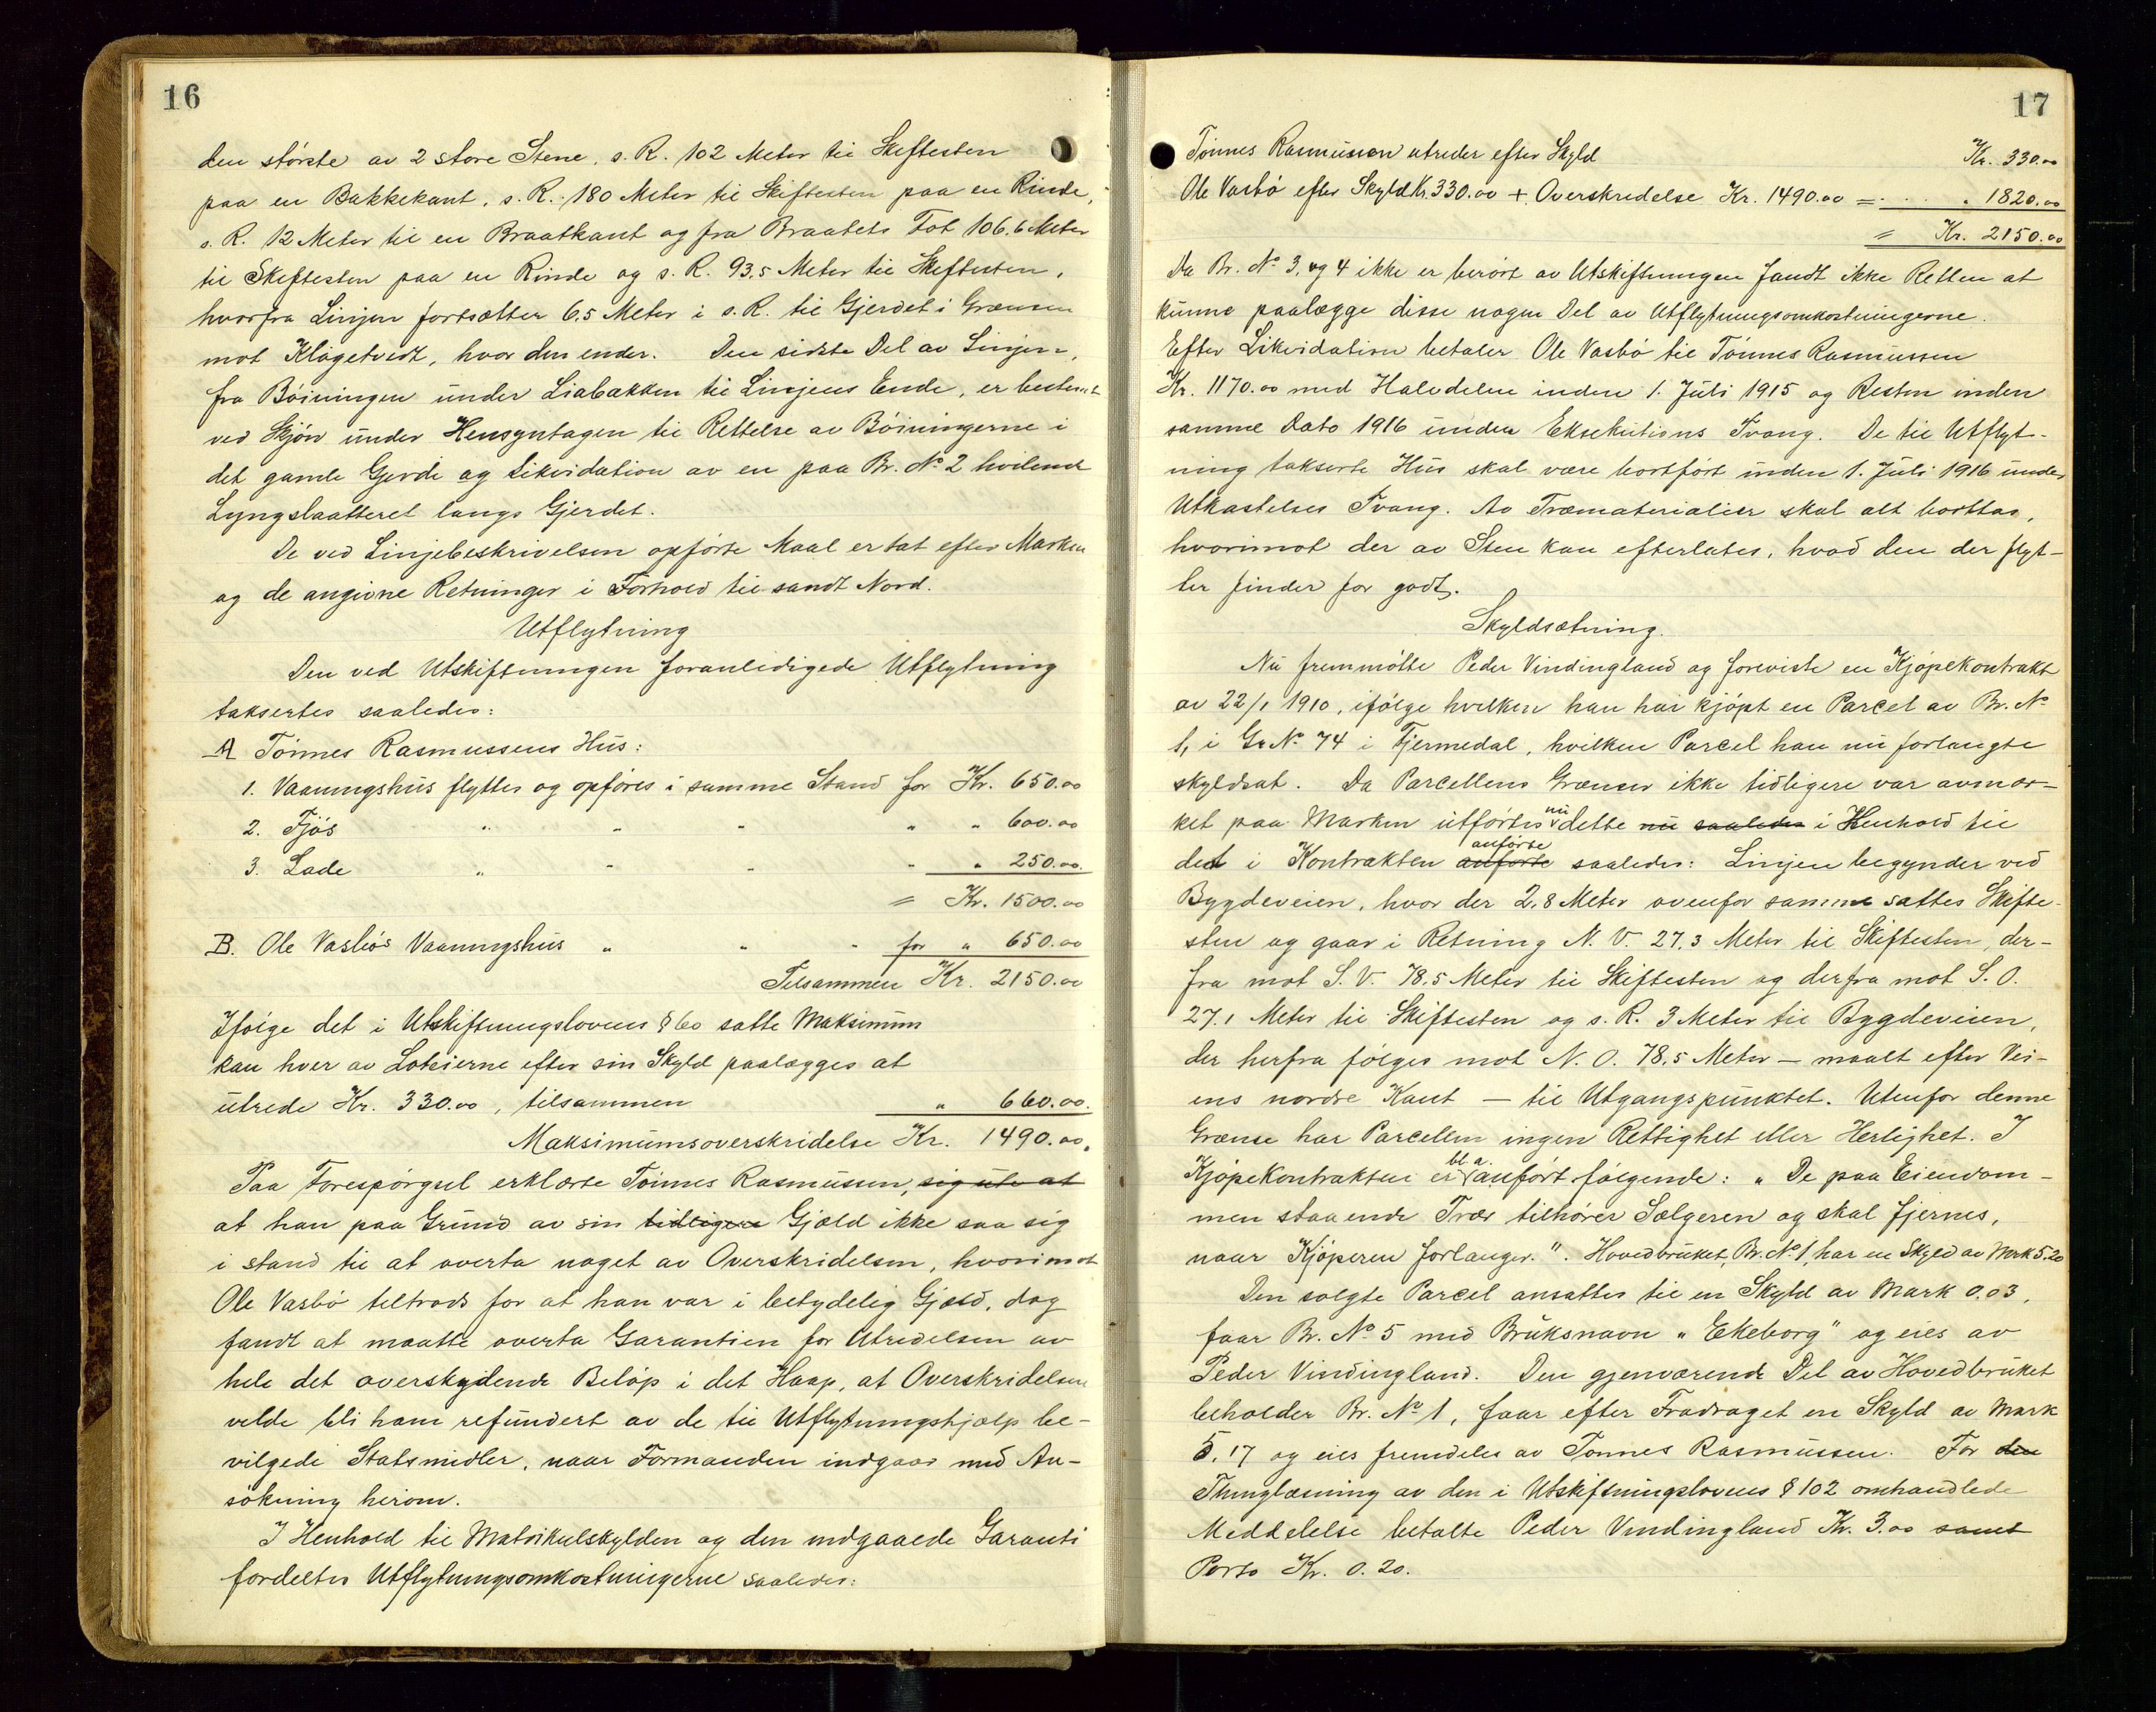 16
den störste av 2 store Stene, s. R. 102 Meter til Skiftesten
paa en Bakkekant, s. R. 180 Meter til Skiftesten paa en Rinde,
s. R. 12 Meter til en Braatkant og fra Braatets Fot 106.6 Meter
til Skiftesten paa en Rinde og s. R. 93.5 Meter til Skiftesten,
hvorfra Linjen fortsætter 6.5 Meter i s. R. til Gjerdet i Grænsen
mot Klögetvedt, hvor den ender. Den sidste Del av Linjen,
fra Böiningen under Liabakken til Linjens Ende, er bestemt
ved Skjön under Hensyntagen til Rettelse av Böiningerne i
det gamle Gjerde og Likvidation av en paa Br. No 2 hvilende
Lyngslaatteret langs Gjerdet.
De ved Linjebeskrivelsen opförte Maal er tat efter Marken
og de angivne Retninger i Forhold til sandt Nord.
Utflytning
Den ved Utskiftningen foranledigede Utflytning
taksertes saaledes:
A Tönnes Rasmussens Hus:
1. Vaaningshus flyttes og opföres i samme Stand for Kr. 650.00
2. Fjös " " " " " 600.00
3. Lade " " " " " 250.00.
= Kr. 1500.00
B. Ole Vasbö's Vaaningshus " " " for " 650.00
Tilsammen Kr. 2150.00
Ifölge det i Utskiftningslovens § 60 satte Maksimum
kan hver av Lotseierne efter sin Skyld paalægges at
utrede Kr. 330.00, tilsammen " 660.00.
Maksimumsoverskridelse Kr. 1490.00.
Paa Forespörgsel erklærte Tönnes Rasmussen, sig ute at
at han paa Grund av sin tidligere Gjæld ikke saa sig
i stand til at overta noget av Overskridelsen, hvorimot
Ole Vasbö tiltrods for at han var i betydelig Gjæld, dog
fandt at maatte overta Garantien for Utredelsen av
hele det overskydende Belöp i det Haap, at Overskridelsen
vilde bli ham refundert av de til Utflytningshjælp be-
vilgede Statsmidler, naar Formanden indgaar med An-
sökning herom.
I Henhold til Matrikulskylden og den indgaaede Garanti
fordeltes Utflytningsomkostningerne saaledes:
17
Tönnes Rasmussen utreder efter Skyld Kr. 330.00
Ole Vasbö efter Skyld Kr. 330.00 + Overskridelse Kr. 1490.00 = " 1820.00
= Kr. 2150.00
Da Br. No 3, og 4 ikke er berört av Utskiftningen fandt ikke Retten at
kunne paalægge disse nogen Del av Utflytningsomkostningerne.
Efter Likvidation betaler Ole Vasbö til Tönnes Rasmussen
Kr. 1170.00 med Halvdelen inden 1. Juli 1915 og Resten inden
samme Dato 1916 under Eksekutions Tvang. De til Utflyt-
ning takserte Hus skal være bortfört inden 1. Juli 1916 under
Utkastelses Tvang. Av Træmaterialier skal alt borttas,
hvorimot der av Sten kan efterlates, hvad den der flyt-
ter finder for godt.
Skyldsætning.
Nu fremmötte Peder Vindingland og foreviste en Kjöpekontrakt
av 22/1 1910, ifölge hvilken han har kjöpt en Parcel av Br. No
1, i Gr No 74 i Fjermedal, hvilken Parcel han nu forlangte
skyldsat. Da Parcellens Grænser ikke tidligere var avmær-
ket paa Marken utförtes nu dette nu saaledes i Henhold til
det i Kontrakten anförte anförte saaledes: Linjen begynder ved
Bygdeveien, hvor der 2,8 Meter ovenfor samme sattes Skifte-
sten og gaar i Retning N. V. 27,3 Meter til Skiftesten, der-
fra mot S. V. 78.5 Meter til Skiftesten og derfra mot S. O.
27.1 Meter til Skiftesten og s. R. 3 Meter til Bygdeveien,
der herfra fölges mot N. O. 78,5 Meter – maalt efter Vei-
ens nordre Kant – til Utgangspunktet. Utenfor denne
Grænse har Parcellen ingen Rettighet eller Herlighet. I
Kjöpekontrakten er bl.a. anfört fölgende: "De paa Eiendom-
men staaende Trær tilhörer Sælgeren og skal fjernes,
naar Kjöperen forlanger.". Hovedbruket, Br. No 1, har en Skyld av Mark 5.20
Den solgte Parcel ansattes til en Skyld av Mark 0.03,
faar Br. No 5 med Bruksnavn "Ekeborg" og eies av
Peder Vindingland. Den gjenværende Del av Hovedbruket
beholder Br. No 1, faar efter Fradraget en Skyld av Mark
5.17 og eies fremdeles av Tönnes Rasmussen. For den
Thinglæsning av den i Utskiftningslovens § 102 omhandlede
Meddelelse betalte Peder Vindingland Kr. 3.00 samt
Porto Kr. 0.20.